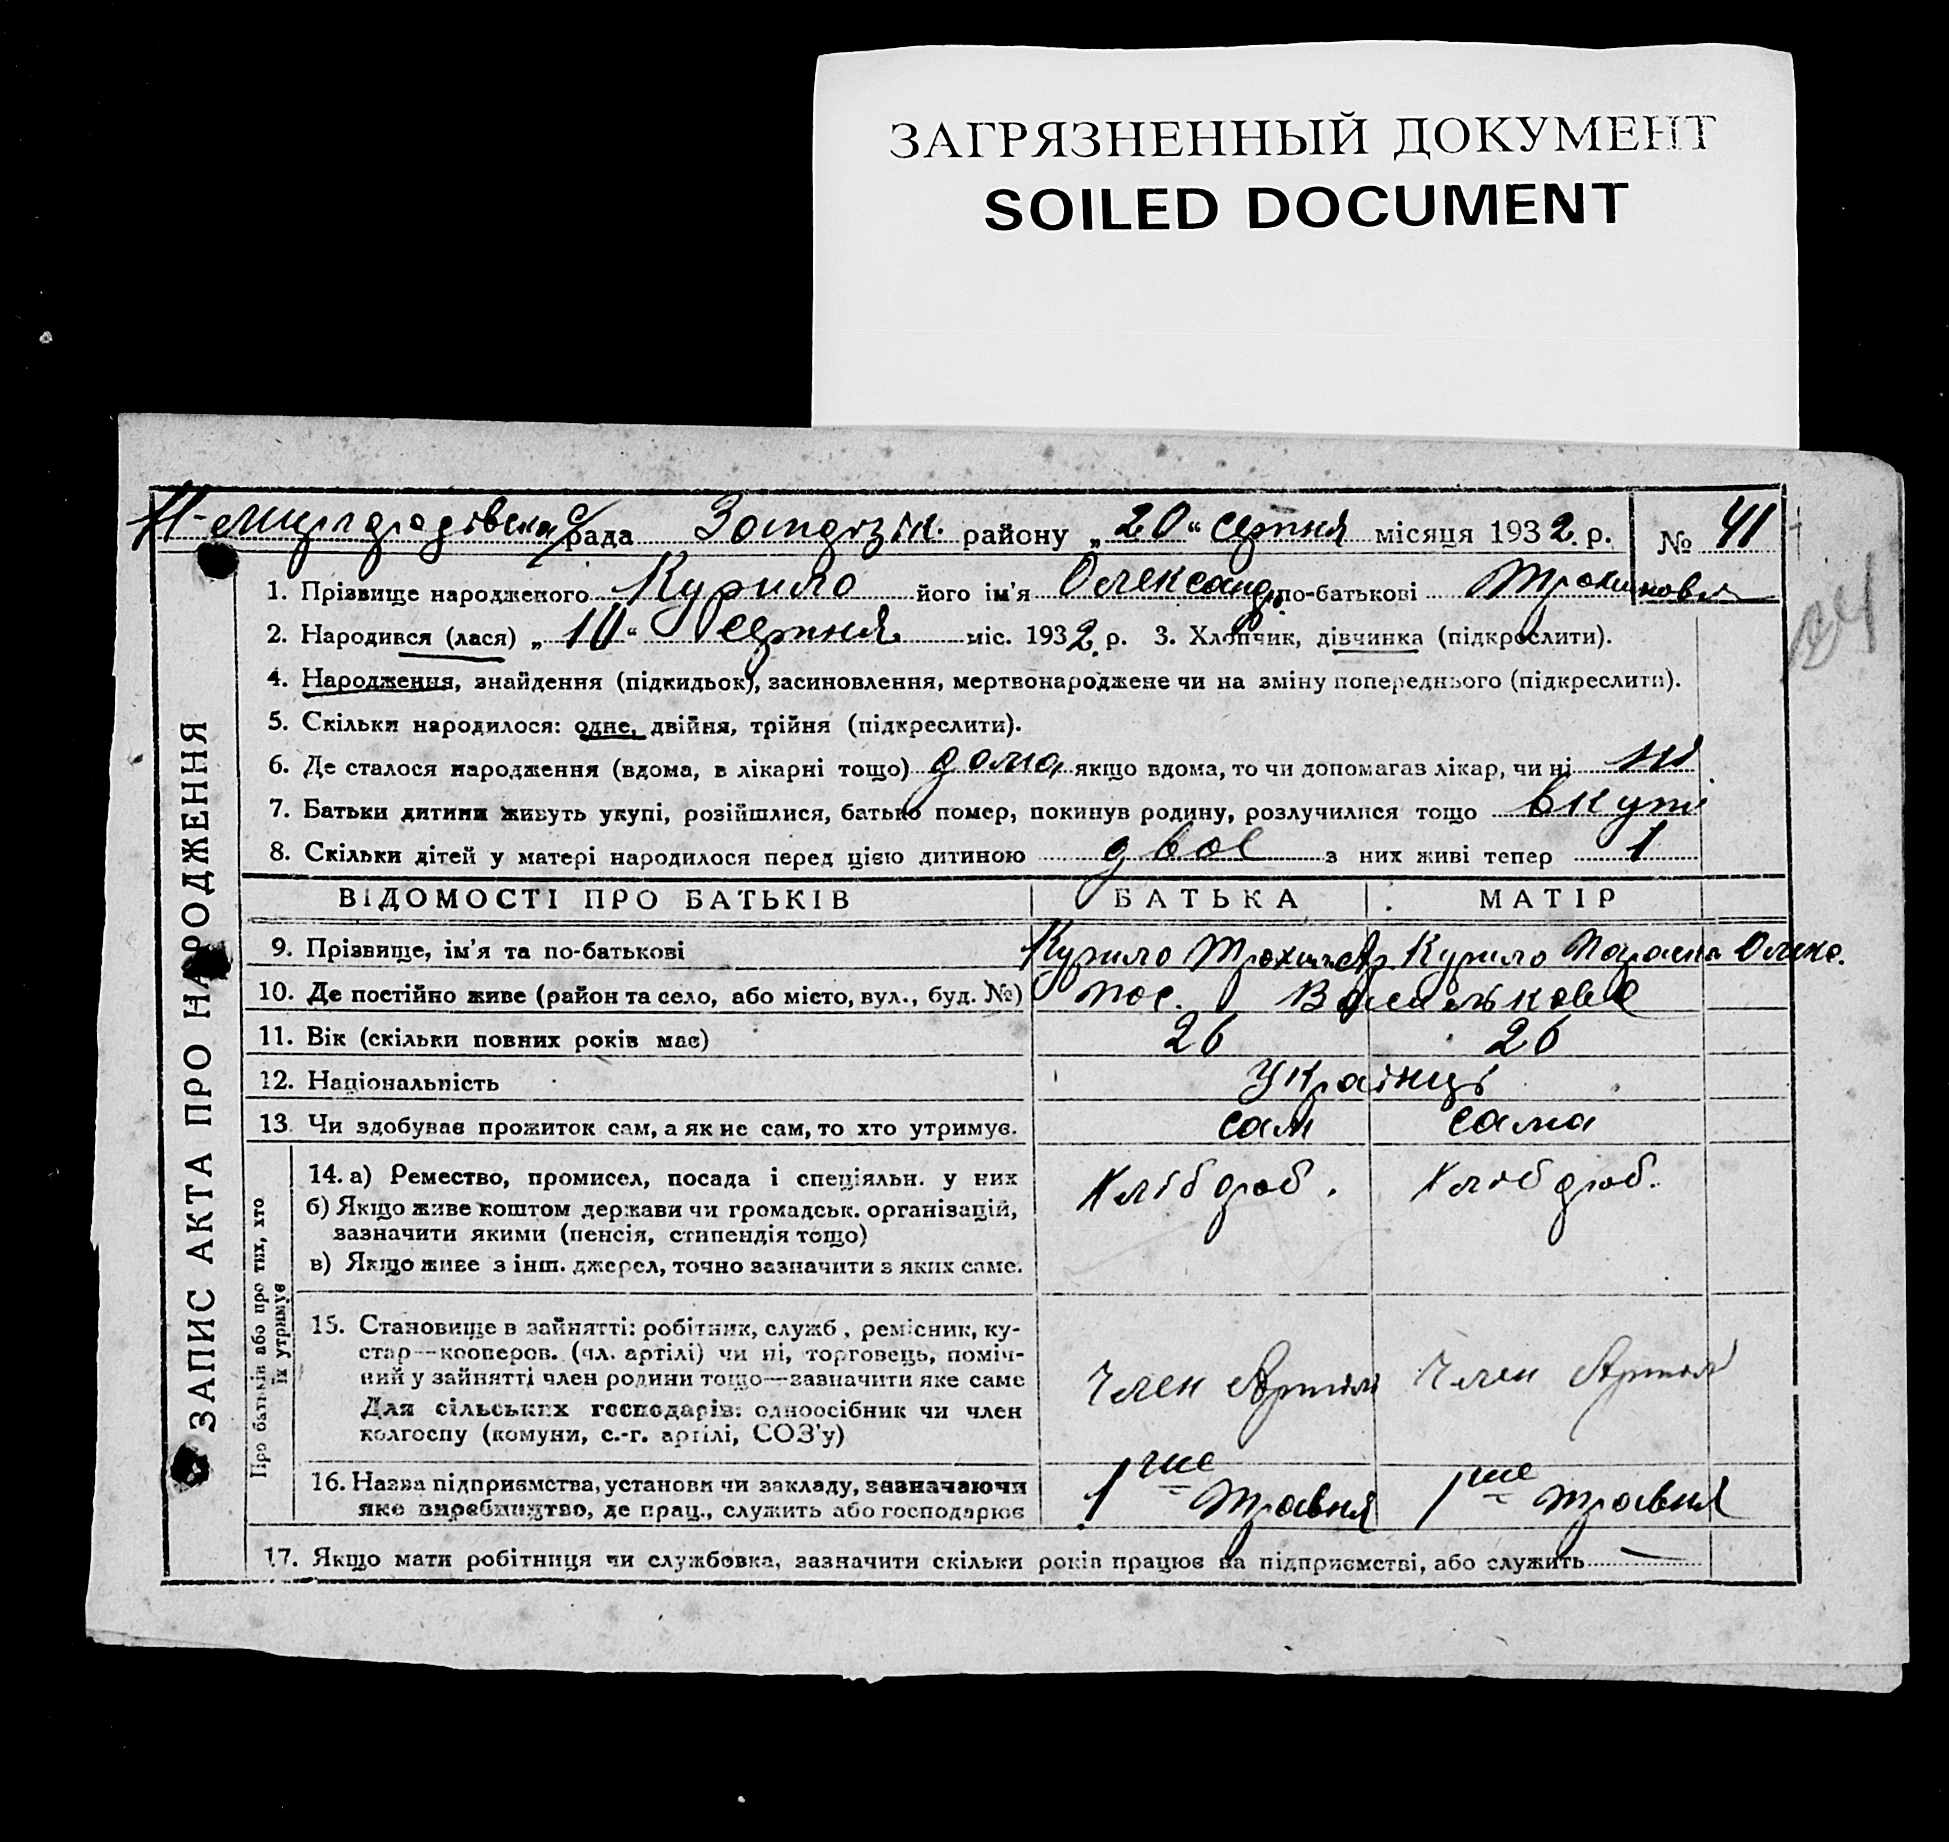 ЗАГРЯЗНЕННЫЙ ДОКУМЕНТ
SOILED DOCUMENT
Н-Миргородівська с/рада району „20“ серпня місяця 1932 р. № 41
1. Прізвище народженого Курило його ім'я Олександр по-батькові
2. Народився (лася) „10“ серпня міс. 1932 р. 3. Хлопчик, дівчинка (підкреслити).
4. Народження, знайдення (підкидьок), засиновлення, мертвонароджене чи на зміну попереднього (підкреслити).
5. Скільки народилося: одне, двійня, трійня (підкреслити).
6. Де сталося народження (вдома, в лікарні тощо) дома, якщо вдома, то чи допомагав лікар, чи ні ні
7. Батьки дитини живуть укупі, розійшлися, батько помер, покинув родину, розлучилися тощо вкупі
8. Скільки дітей у матері народилося перед цією дитиною двоє з них живі тепер 1
ВІДОМОСТІ ПРО БАТЬКІВ БАТЬКА МАТІР
9. Прізвище, ім'я та по-батькові Курило Трохим Курило Параска Олекс.
10. Де постійно живе (район та село, або місто, вул., буд. №) пос. Василькове
11. Вік (скільки повних років має) 26 26
12. Національність Українці
13. Чи здобуває прожиток сам, а як не сам, то хто утримує. сам сама
14. а) Ремество, промисел, посада і спеціяльн. у них Хлібороб. Хлібороб.
б) Якщо живе коштом держави чи громадськ. організацій,
зазначити якими (пенсія, стипендія тощо)
в) Якщо живе з інш. джерел, точно зазначити з яких саме.
15. Становище в зайнятті: робітник, служб., ремісник, ку-
стар—кооперов. (чл. артілі) чи ні, торговець, поміч-
ний у зайнятті член родини тощо—зазначити яке саме
Для сільських господарів: одноосібник чи член Член Артілі Член Артілі
колгоспу (комуни, с.-г. артілі, СОЗ'у)
16. Назва підприємства, установи чи закладу, зазначаючи 1ше Травня 1ше травня
яке виробництво, де прац., служить або господарює
17. Якщо мати робітниця чи службовка, зазначити скільки років працює на підприємстві, або служить —
ЗАПИС АКТА ПРО НАРОДЖЕННЯ
Про батьків або про тих, хто
їх утримує